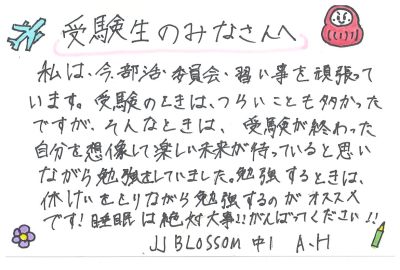 受験生のみなさんへ
私は、今、部活・委員会・習い事を頑張って
います。受験のときは、つらいことも多かった
ですが、そんなときは、受験が終わった
自分を想像して楽しい未来が待っていると思い
ながら勉強をしていました。勉強するときは、
休けいをとりながら勉強するのがオススメ
です!睡眠は絶対大事!!がんばってください!!
JJ BLOSSOM 中1 A.H